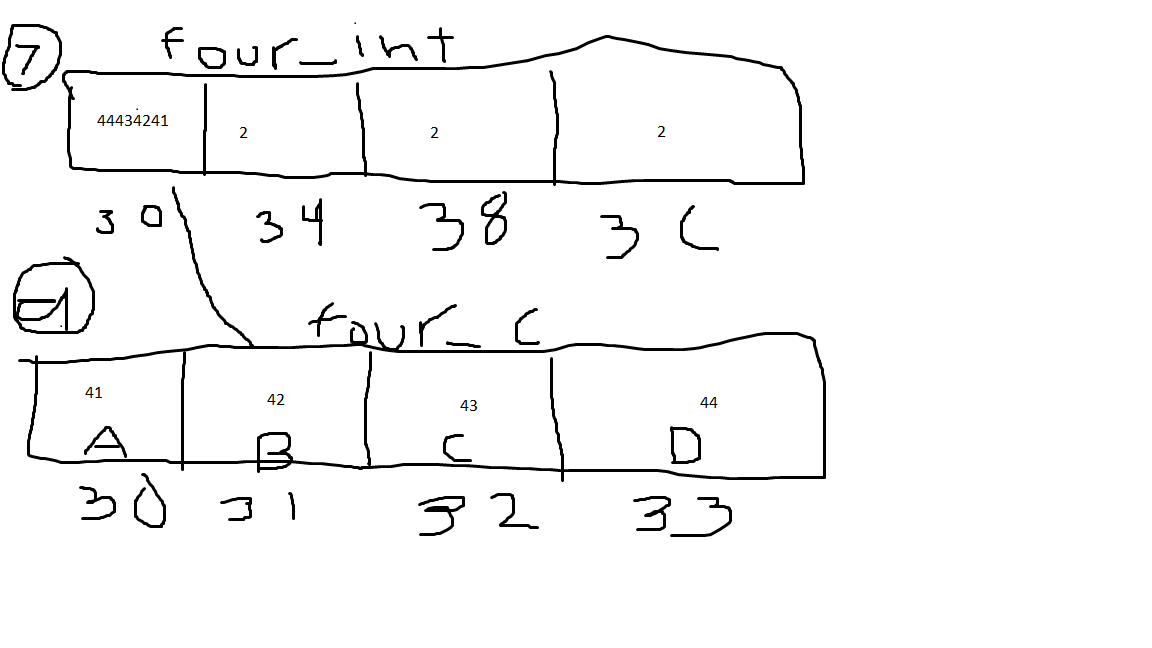 7 four_int
44434241 2 2 2
30 34 38 3C
four_C
41 42 43 44
A B C D
30 31 32 33